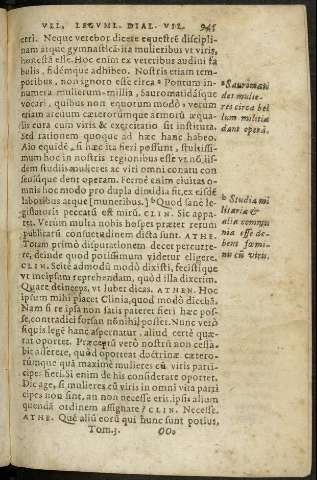 VEL, LEGVMI. DIAL. VII. 945
erri. Neque verebor dicere equestrē discipli-
nam atque gymnasticā-ita mulieribus vt viris,
honestā esse. Hoc enim ex veteribus audini fa
bulis, fidémque adhibeo. Nostris etiam tem-
poribus, non ignoro esse circa ª Pontum in-
numera mulierum-millia, Sauromatidásque
vocari, quibus non equorum modò, verum
etiam arcuum cæterorúmque armorū æqua-
lis cura cum viris & exercitatio sit instituta.
Sed rationem quoque ad hæc hanc habeo.
Aio equidē, si hæc ita fieri possunt, stultissi-
mum hoc in nostris regionibus esse vt nō, iis-
dem studiis mulieres ac viri omni conatu con
sensúque dent operam. Fermè enim ciuitas o-
mnis hoc modo pro dupla dimidia fit, ex eisdē
laboribus atque [muneribus.] ᵇ Quod sanè le-
gislatoris peccatū est mirū. CLIN. Sic appa-
ret. Verum multa nobis hospes præter rerum
publicarū consuetudinem dicta sunt. ATHE.
Totam primò disputationem decet percurre-
re, deinde quod potissimum videtur eligere.
CLIN. Scitè admodū modò dixisti, fecistíque
vt meipsum reprehendam, quòd illa dixerim.
Quare deinceps, vt lubet dicas. ATHEN. Hoc
ipsum mihi placet Clinia, quod modò dicebā.
Nam si re ipsa non satis pateret fieri hæc pos-
se, contradici forsan nōnihil posset. Nunc verò
siquis legē hanc aspernatur, aliud certè quæ-
rat oportet. Præceptū verò nostrū non cessa-
bit asserere, quòd oporteat doctrinæ cætero-
rúmque quā maximè mulieres cū viris parti-
cipes fieri. Si enim de his considerate oportet.
Dic age, si mulieres cū viris in omni vita parti
cipes nō sint, an non necesse erit, ipsis alium
quendā ordinem assignare? CLIN. Necesse.
ATHE. Quē aliū eorū qui hunc sunt potius,
Tom.3. OOo
ª Sauromati
des mulie-
res circa bel
lum militiæ
dant operā.
ᵇ Studia mi
litaria &
alia commu
nia esse de-
bent fœmi-
nis cū viris.